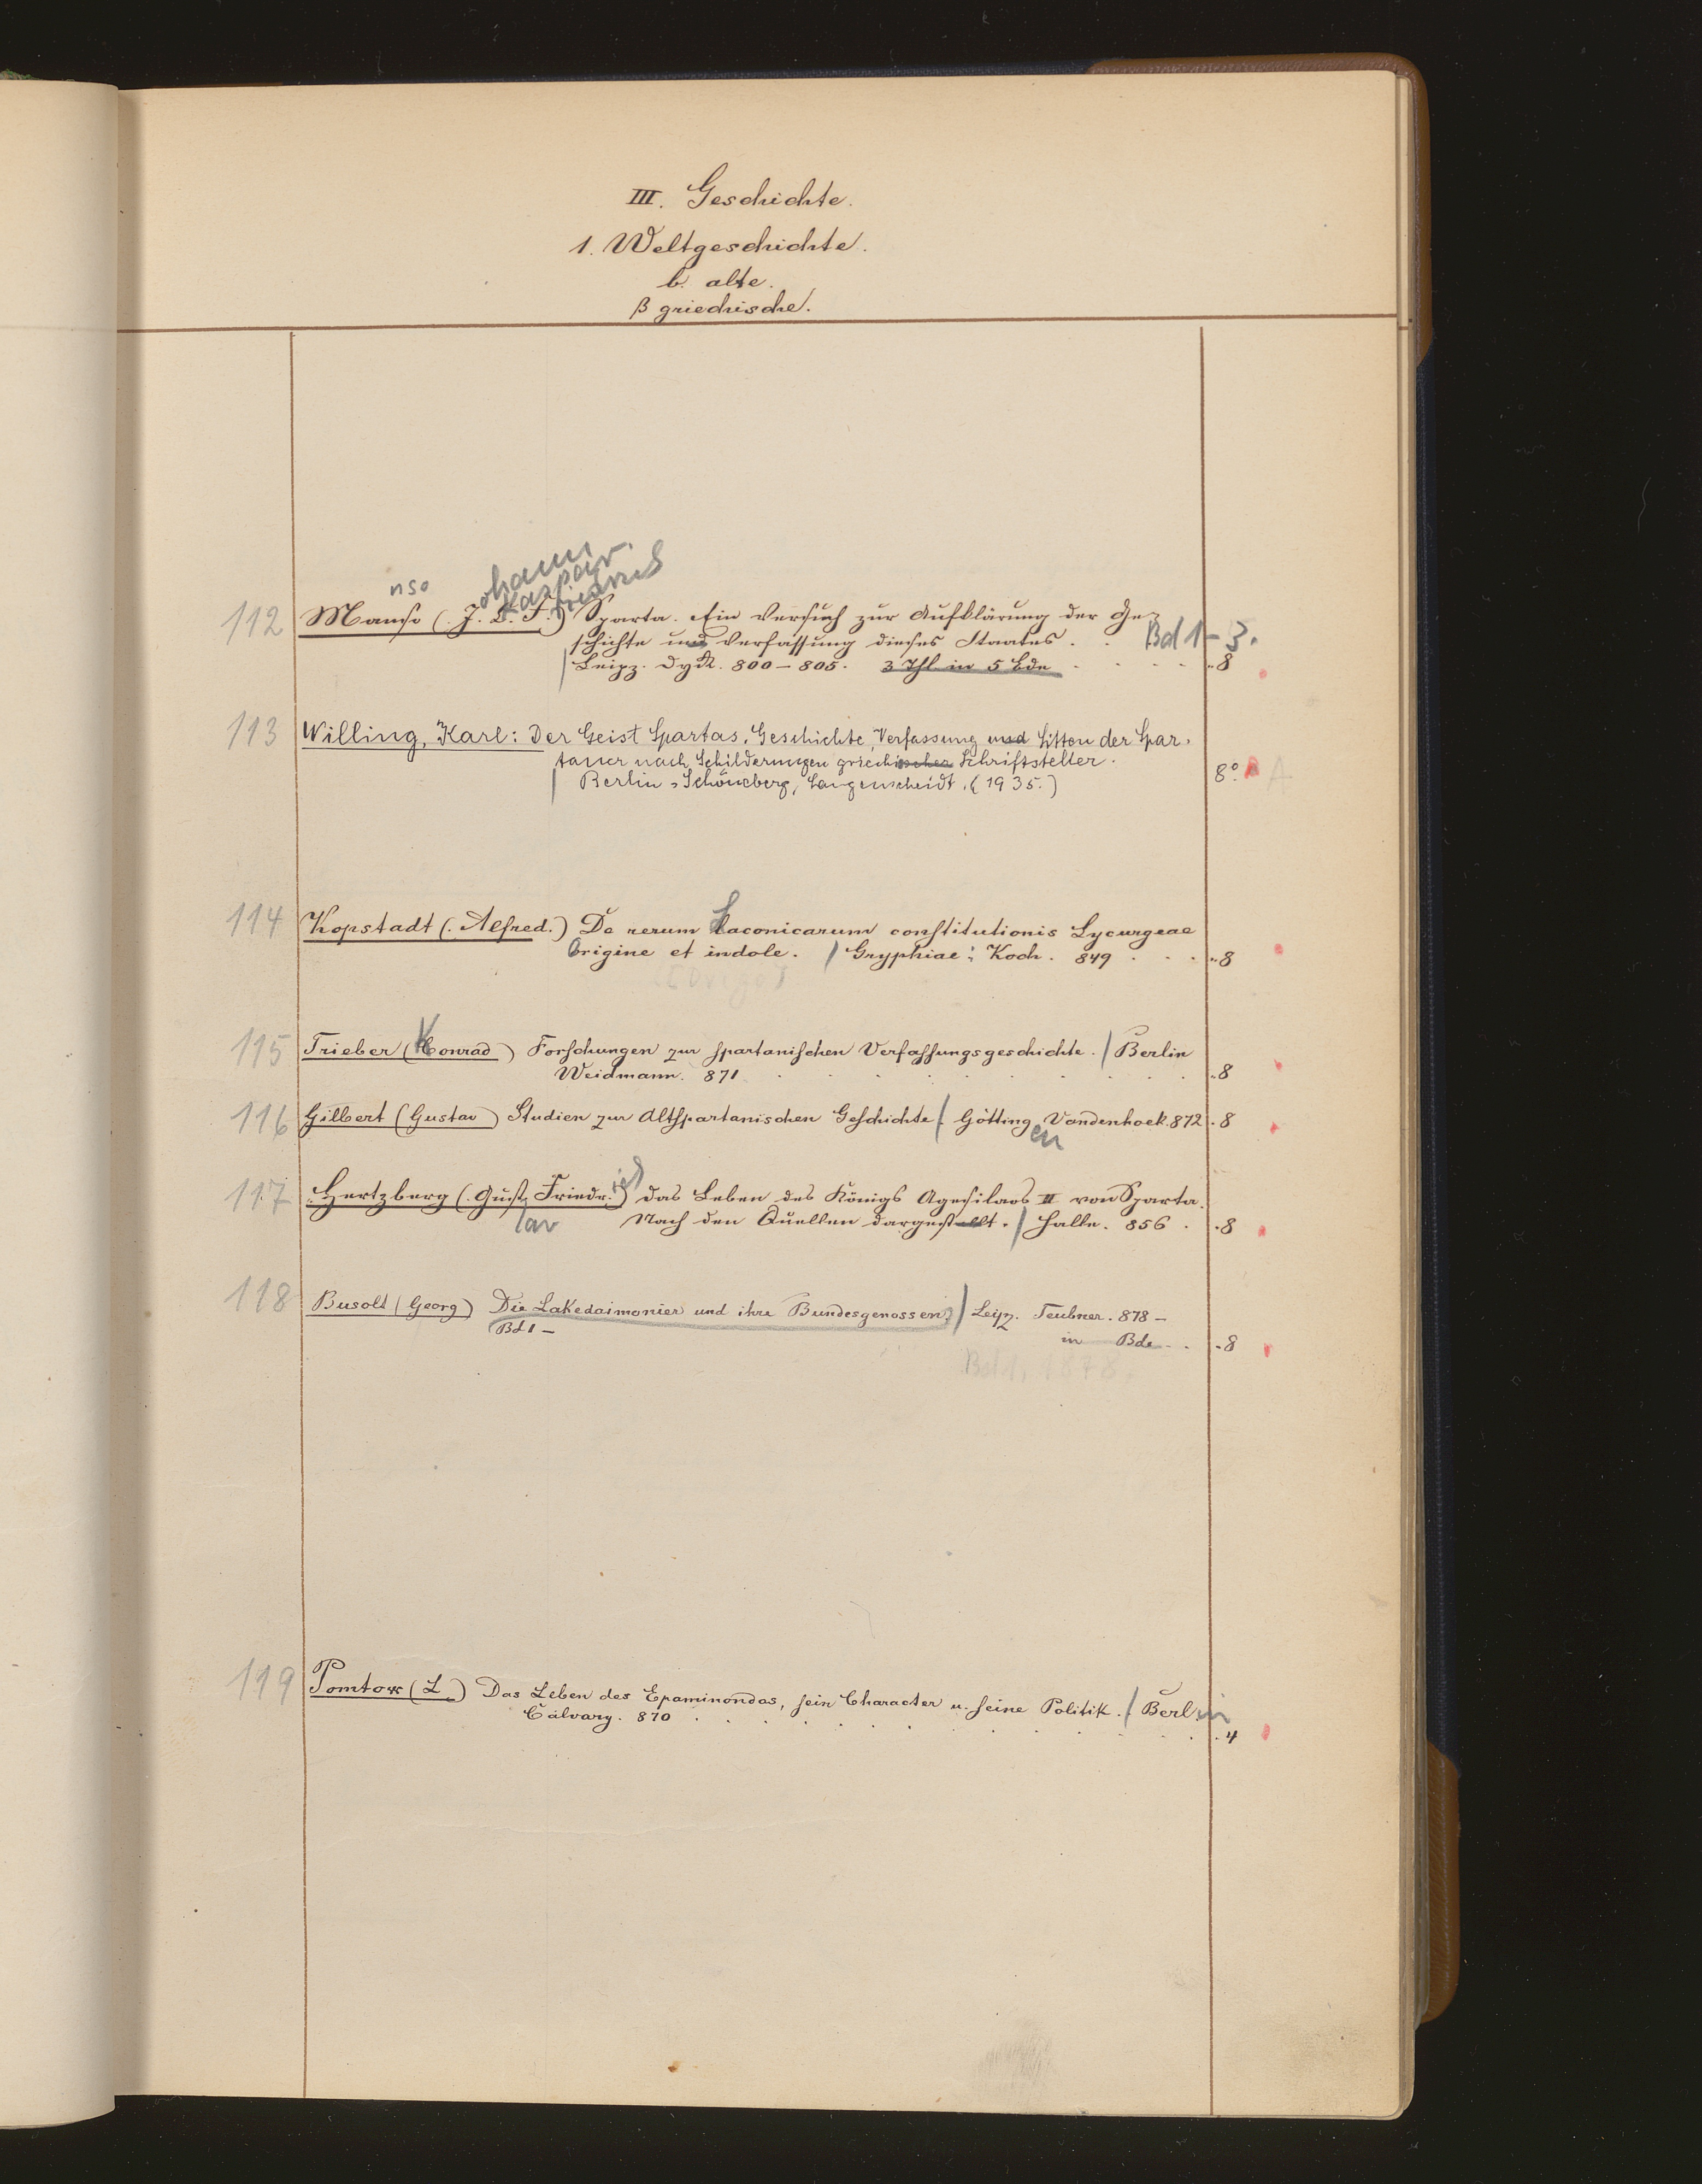 III. Geschichte.
1. Weltgeschichte.
b. alte.
β griechische.
nso ohann Kaspar Friedrich
112 Manso (J. C. F.) Sparta. Ein Versuch zur Aufklärung der Ge-
schichte und Verfassung dieses Staates. . Bd 1-3.
Leipz. Dyk. 800-805. 3 Thl in 5 Bde . . . . "8
113 Willing, Karl: Der Geist Spartas. Geschichte, Verfassung und Sitten der Spar-
taner nach Schilderungen griechischer Schriftsteller.
Berlin-Schöneberg, Langenscheidt. (1935.) 8° A
114 Kopstadt (Alfred.) De rerum Laconicarum constitutionis Lycurgeae
Origine et indole. / Gryphiae: Koch. 849 . . . "8
115 Trieber (Konrad) Forschungen zur spartanischen Verfassungsgeschichte. / Berlin
Weidmann. 871 . . . . . . . . . "8
116 Gilbert (Gustav) Studien zur Altspartanischen Geschichte / Götting Vandenhoek. 872 . 8
en
117 Hertzberg (Gust. Friedr.) Das Leben des Königs Agesilaos II von Sparta.
tav Nach den Quellen dargestellt. / Halle. 856 . . 8
118 Busolt (Georg) Die Lakedaimonier und ihre Bundesgenossen / Leipz. Teubner. 878 –
Bd 1 – in Bde . . . 8
Bd 1, 1878.
119 Pomtow (L.) Das Leben des Epaminondas, sein Character u. seine Politik. / Berlin
Calvary. 870 . . . . . . . . . . . . 4